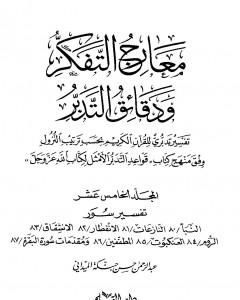 معارج التفكر
ودقائق التدبر
تفسير تدبري للقرآن الكريم بحسب ترتيب النزول
وفق منهج كتاب «قواعد التدبر الأمثل لكتاب الله عز وجل»
المجلد الخامس عشر
تفسير سور
النبأ/٨٠ النازعات/٨١ الانفطار/٨٢ الانشقاق/٨٣
الروم/٨٤ العنكبوت/٨٥ المطففين/٨٦ ومقدمات سورة البقرة/٨٧
عبد الرحمن حسن حبنكة الميداني